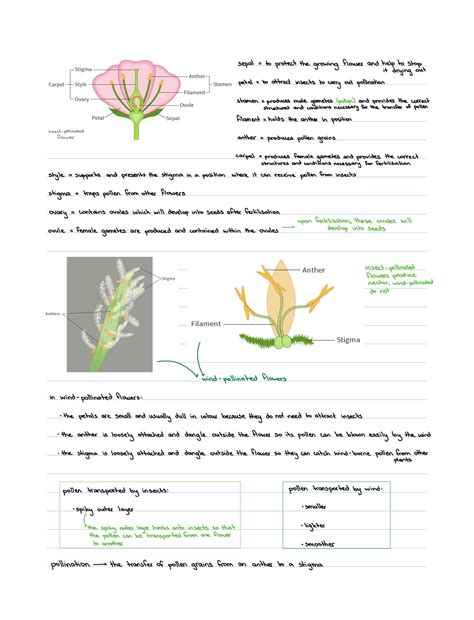 Stigma
Carpel
Style
Ovary
Petal
Anther
Filament
Stamen
Ovule
Sepal
insect-pollinated
flower
sepal = to protect the growing flower and help to stop
it drying out
petal = to attract insects to carry out pollination
stamen = produces male gametes (pollen) and provides the correct
structures and conditions necessary for the transfer of pollen
filament = holds the anther in position
anther = produces pollen grains
carpel = produces female gametes and provides the correct
structures and conditions necessary for fertilisation
style = supports and presents the stigma in a position where it can receive pollen from insects
stigma = traps pollen from other flowers
ovary = contains ovules which will develop into seeds after fertilisation
ovule = female gametes are produced and contained within the ovules
upon fertilisation, these ovules will
develop into seeds
Stigma
Anthers
Anther
Filament
Stigma
insect-pollinated
flowers produce
nectar, wind-pollinated
do not
wind-pollinated flowers
in wind-pollinated flowers:
• the petals are small and usually dull in colour because they do not need to attract insects
• the anther is loosely attached and dangle outside the flower so its pollen can be blown easily by the wind
• the stigma is loosely attached and dangle outside the flower so they can catch wind-borne pollen from other
plants
pollen transported by insects:
• spiky outer layer
the spiky outer layer hooks onto insects so that
the pollen can be transported from one flower
to another
pollen transported by wind:
• smaller
• lighter
• smoother
pollination → the transfer of pollen grains from an anther to a stigma